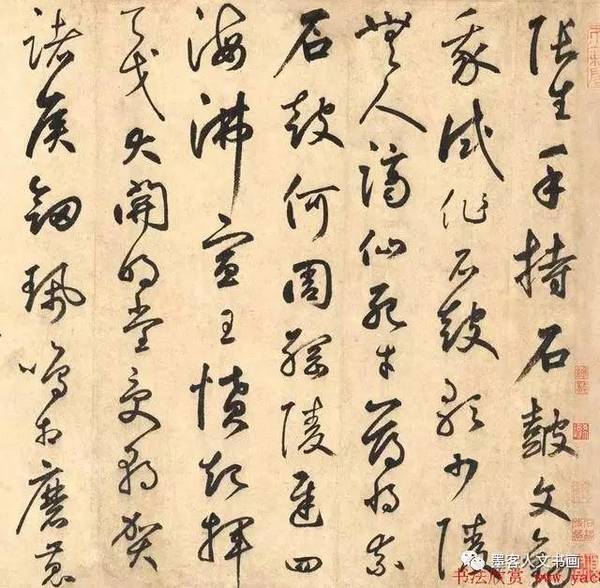 張生手持石鼓文勸
我試作石鼓歌少陵
無人謫仙死才薄將奈
石鼓何周綱陵遲四
海沸宣王憤起揮
天戈大開明堂受朝賀
諸侯劍珮鳴相磨蒐
墨客人文书画
书法欣赏